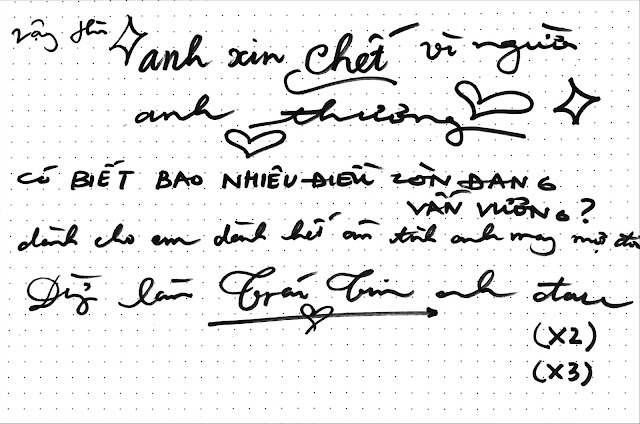 vậy thì anh xin chết vì người
anh thương
CÓ BIẾT BAO NHIÊU ĐIỀU CÒN ĐANG
VẤN VƯƠNG?
dành cho em dành hết ân tình anh mang một đời
Đừng làm trái tim anh đau
(X2)
(X3)